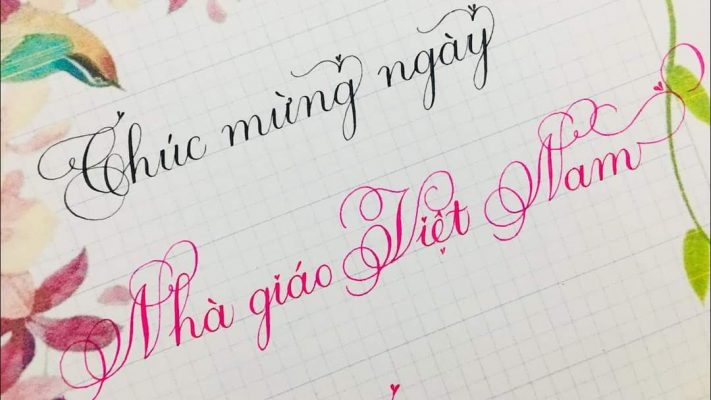 Chúc mừng ngày
Nhà giáo Việt Nam